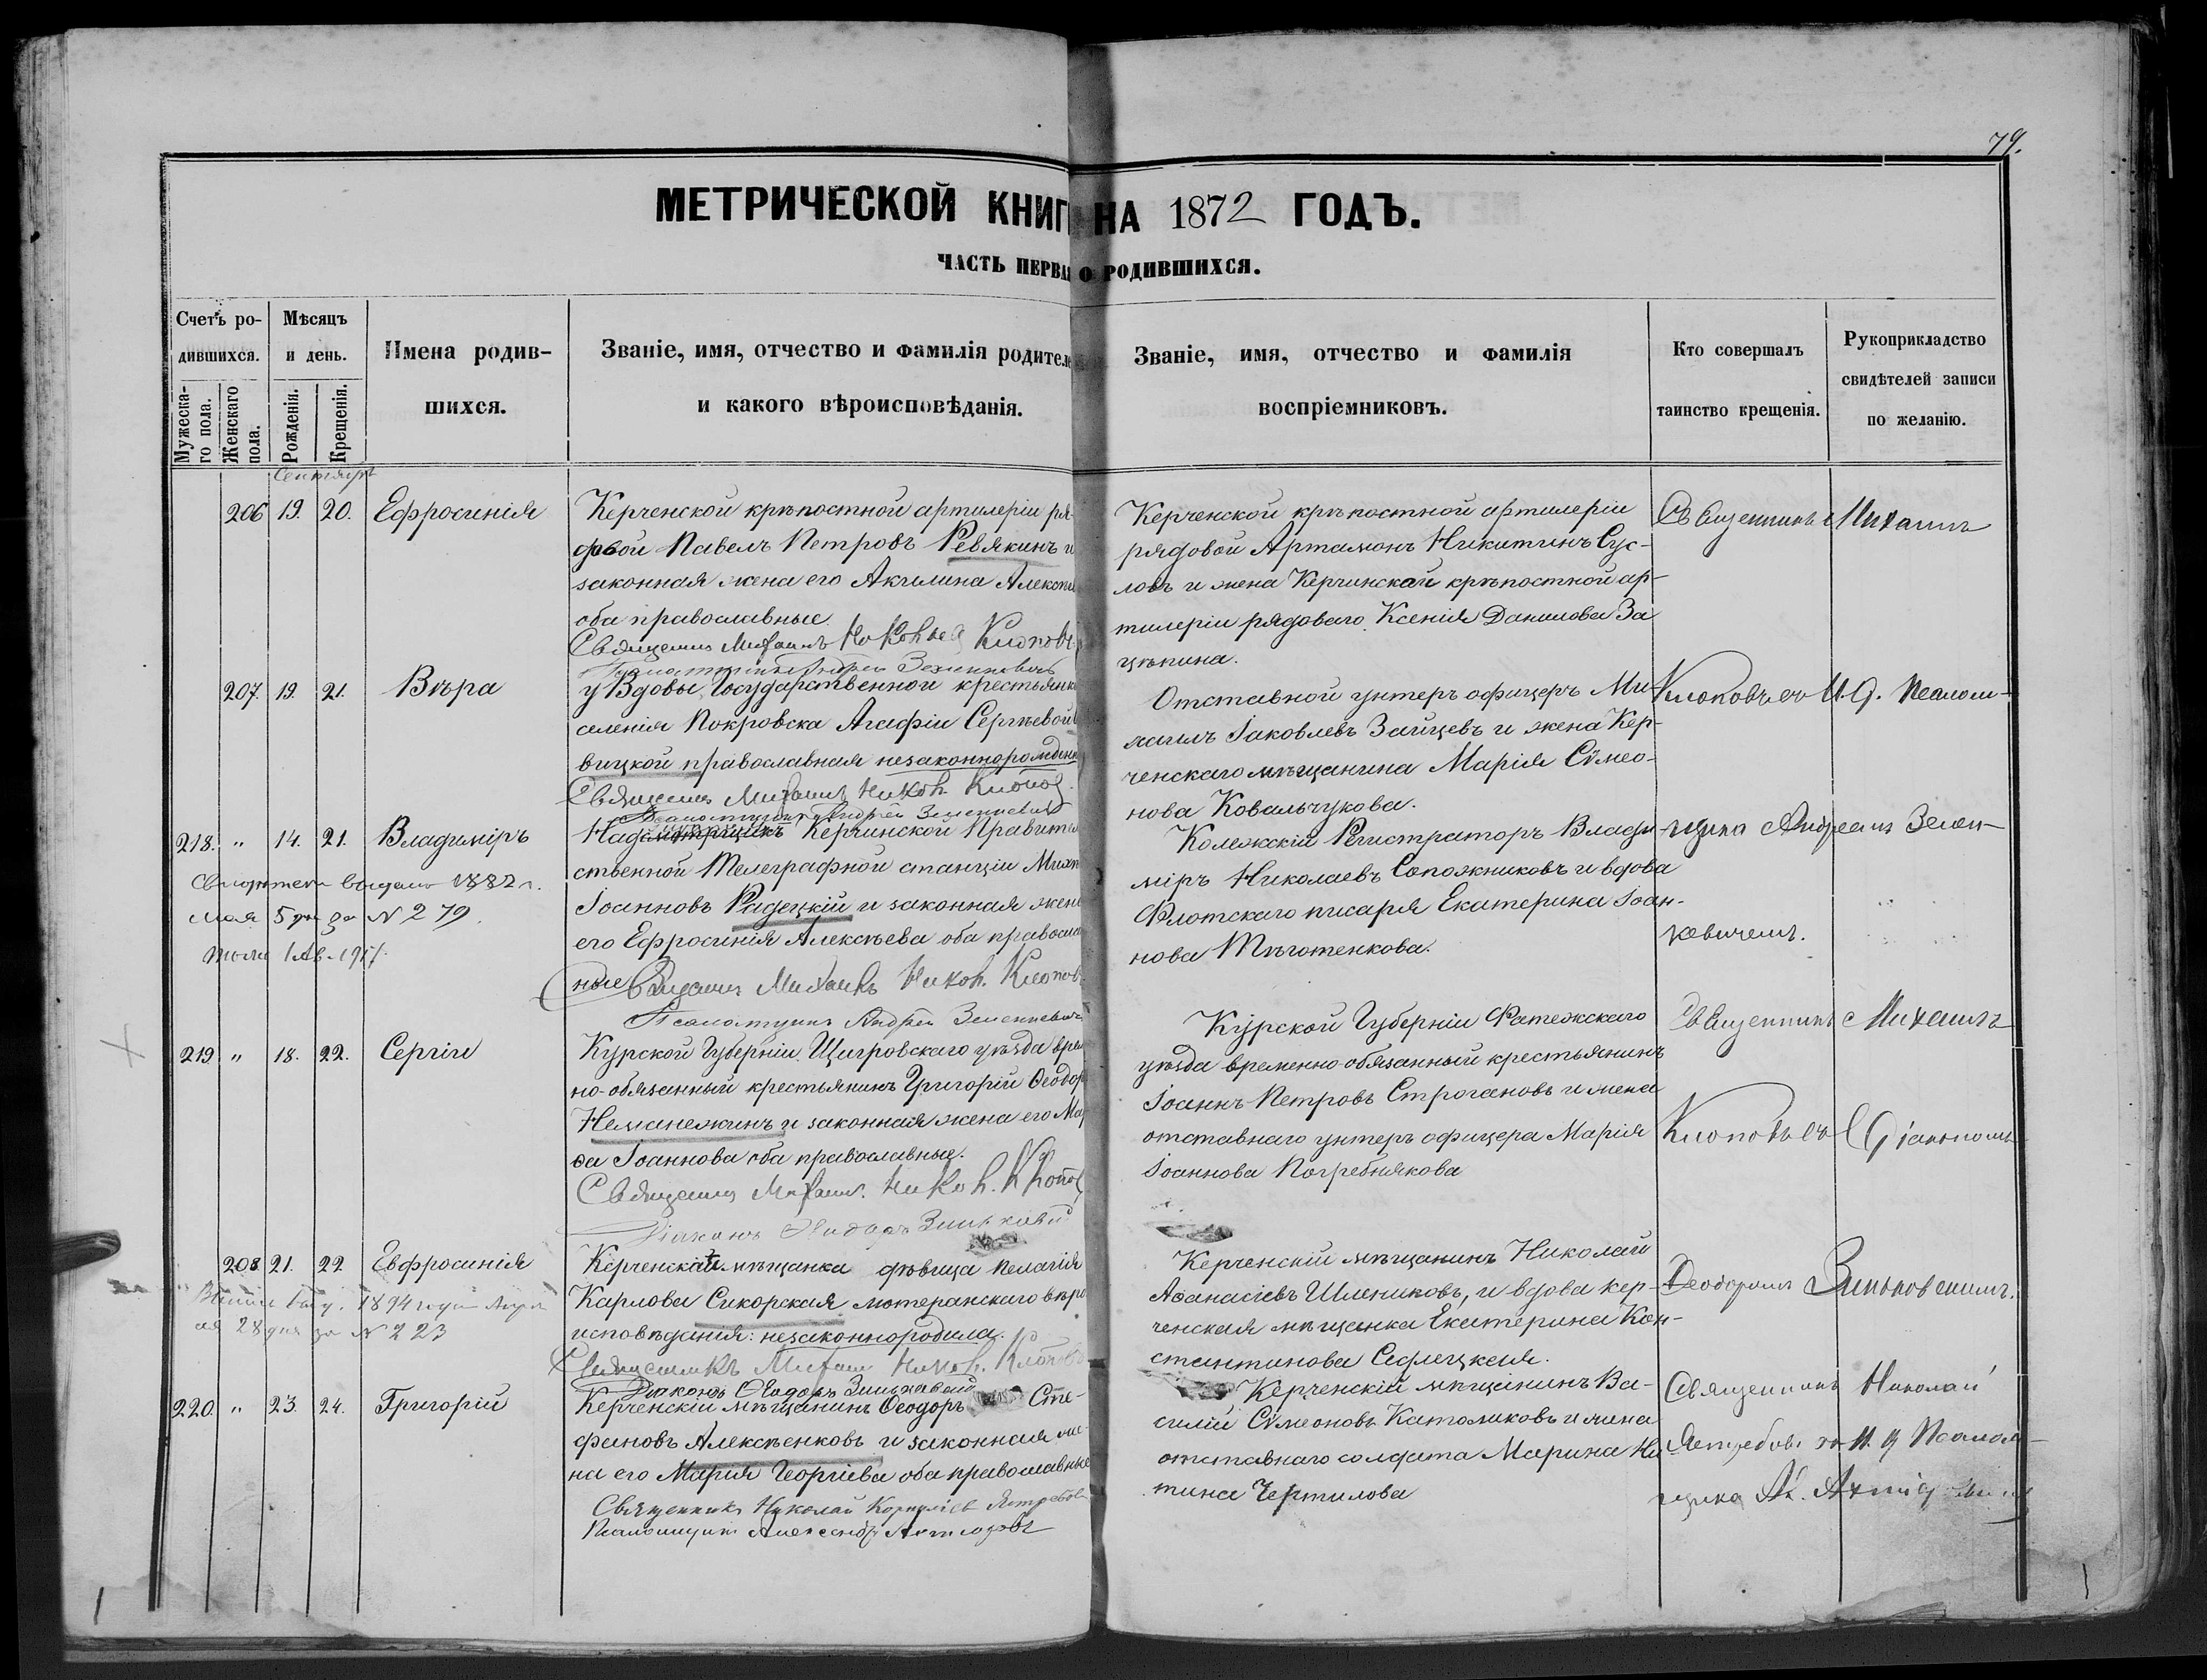 79.
МЕТРИЧЕСКОЙ КНИГ НА 1872 ГОДЪ.
ЧАСТЬ ПЕРВАЯ О РОДИВШИХСЯ.
Счетъ ро-
дившихся.
Мужеска-
го пола.
Женскаго
пола.
Мѣсяцъ
и день.
Рожденія.
Крещенія.
Имена родив-
шихся.
Званіе, имя, отчество и фамилія родителе
и какого вѣроисповѣданія.
Званіе, имя, отчество и фамилія
воспріемниковъ.
Кто совершалъ
таинство крещенія.
Рукоприкладство
свидѣтелей записи
по желанію.
Сентябрь
206 19. 20. Ефросинія
Керченской крѣпостной артилеріи ря-
довой Павелъ Петровъ Ревякинъ и
законная жена его Акилина Алексѣ
оба православные.
Священникъ Михаилъ Клоповъ
Андрей Зеленкевичъ
Керченской крѣпостной артилеріи
рядовой Артамонъ Никитинъ Сус-
ловъ и жена Керчинской крѣпостной ар-
тилеріи рядоваго Ксенія Данилова За
цѣпина.
Священникъ Михаилъ
207. 19. 21. Вѣра
у Вдовы Государственной крестьянк
селенія Покровска Агафіи Сергѣевой
вицкой православная незаконнорожден
Священникъ Михаилъ Никон. Клопов
Псаломщикъ Андрей Зеленкевичъ
Отставной унтеръ офицеръ Ми-
хаилъ Іаковлевъ Зайцевъ и жена Кер-
ченскаго мѣщанина Марія Сѵмео-
нова Ковальчукова.
Клоповъ съ И. д. Псалом-
218. " 14. 21. Владиміръ
Свидѣтел. выдано 1882 г.
мая 5 дня за № 279.
Надсмотрщикъ Керчинской Правител
ственной Телеграфной станціи Миха
Іоанновъ Радецкій и законная жена
его Ефросинія Алексѣева оба правосла
ные Священникъ Михаилъ Никон. Клопов
Псаломщикъ Андрей Зеленкевичъ
Колежскій Регистраторъ Влади-
міръ Николаевъ Сапожниковъ и вдова
Флотскаго писаря Екатерина Іоан-
нова Тѣготенкова.
щика Андреемъ Зелен-
кевичемъ.
219 " 18. 22. Сергій
Курской Губерніи, Щигровскаго уѣзда врем
но-обязанный крестьянинъ Григорій Ѳеодор
Неманежинъ и законная жена его Ма
ѳа Іоаннова оба православные.
Священникъ Михаил. Никон. Клопов
Діаконъ Ѳеодоръ Зиньковск
Курской Губерніи Фатежскаго
уѣзда временно-обязанный крестьянинъ
Іоаннъ Петровъ Строгановъ и жена
отставнаго унтеръ офицера Марія
Іоаннова Погребнякова
Священникъ Михаилъ
Клоповъ съ Діакономъ
208 21. 22. Евфросинія
1894 года
28 дня за № 223
Керченская мѣщанка дѣвица Пелагія
Карлова Сикорская лютеранскаго вѣро
исповѣданія: незаконнородила.
Священникъ Михаил Никон. Клопов
Діаконъ Ѳеодоръ Зиньковск
Керченскій мѣщанинъ Николай
Аѳанасіевъ Шлениковъ, и вдова кер-
ченская мѣщанка Екатерина Кон-
стантинова Седлецкая.
Ѳеодоромъ Зиньковскимъ.
220. " 23. 24. Григорій
Керченскій мѣщанинъ Ѳеодоръ Сте-
фановъ Алексѣенковъ и законная же
на его Марія Георгіева оба православные
Священникъ Николай Корниліев Ястребов
Псаломщикъ Александръ
Керченскій мѣщанинъ Ва-
силій Сѵмеоновъ Католиковъ и жена
отставнаго солдата Марина Ни
тина Чертилова
Священникъ Николай
Ястребовъ съ И. д Псалом-
щика Ал.